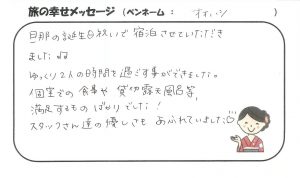 旅の幸せメッセージ (ペンネーム : オオハシ )
旦那の誕生日祝いで宿泊させていただき
ました♪♪
ゆっくり2人の時間を過ごす事ができました。
個室での食事や貸切露天風呂等、
満足するものばかりでした!
スタッフさん達の優しさもあふれていました♡